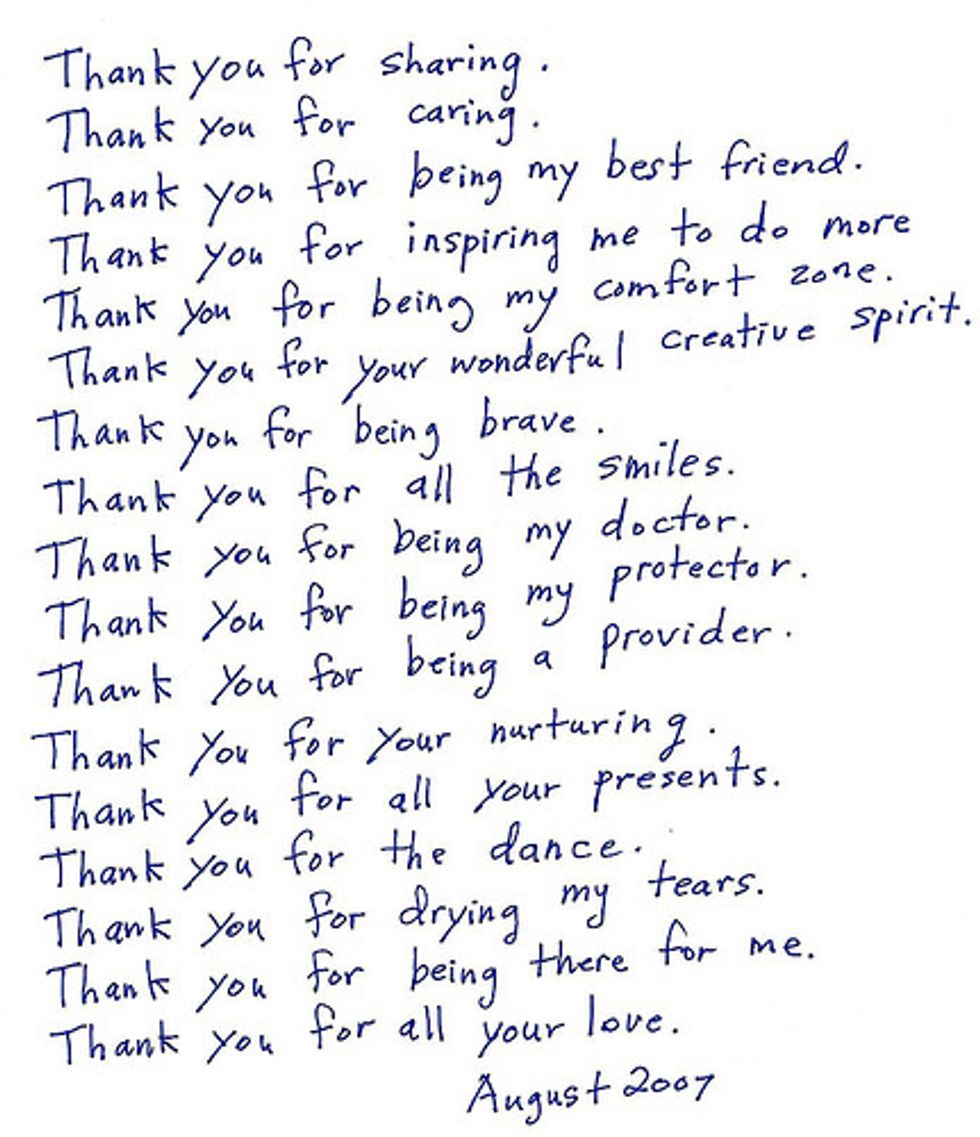 Thank you for sharing.
Thank you for caring.
Thank you for being my best friend.
Thank you for inspiring me to do more
Thank you for being my comfort zone.
Thank you for your wonderful creative spirit.
Thank you for being brave.
Thank you for all the smiles.
Thank you for being my doctor.
Thank you for being my protector.
Thank you for being a provider.
Thank you for your nurturing.
Thank you for all your presents.
Thank you for the dance.
Thank you for drying my tears.
Thank you for being there for me.
Thank you for all your love.
August 2007